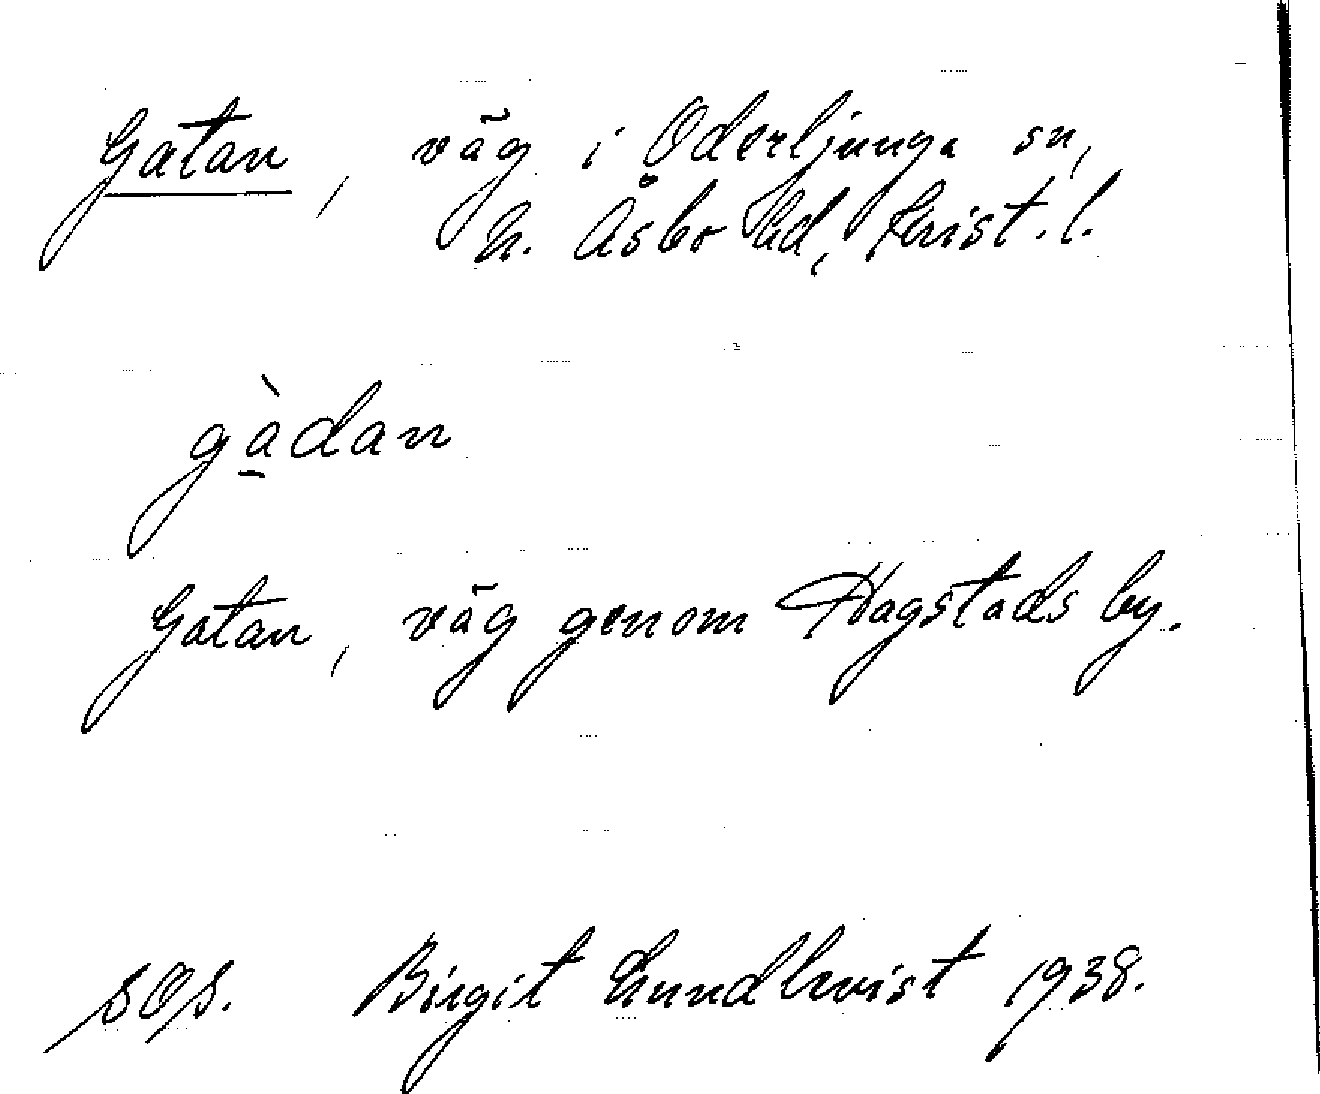 Gatan, väg i Oderljunga sn,
N. Åsbo hd, Krist. l.
gàdan
Gatan, väg genom Hagstads by.
Birgit Lundkvist 1938.